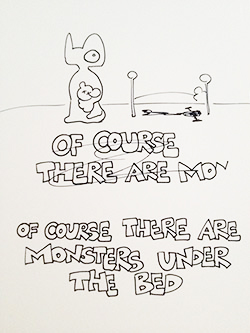 OF COURSE
THERE ARE MON
OF COURSE THERE ARE
MONSTERS UNDER
THE BED